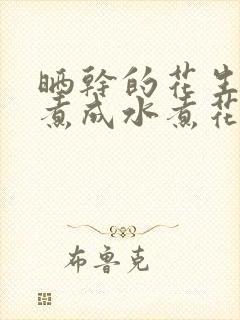 晒幹的花生
煮成水煮花
布鲁克